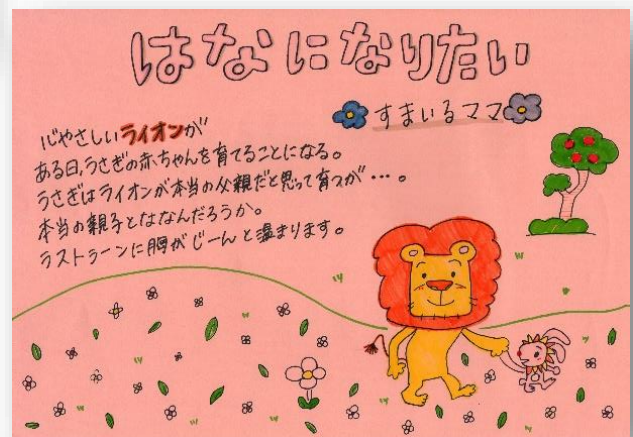 はなになりたい
すまいるママ
心やさしいライオンが
ある日、うさぎの赤ちゃんを育てることになる。
うさぎはライオンが本当の父親だと思って育つが…。
本当の親子とはなんだろうか。
ラストシーンに胸がじーんと温まります。